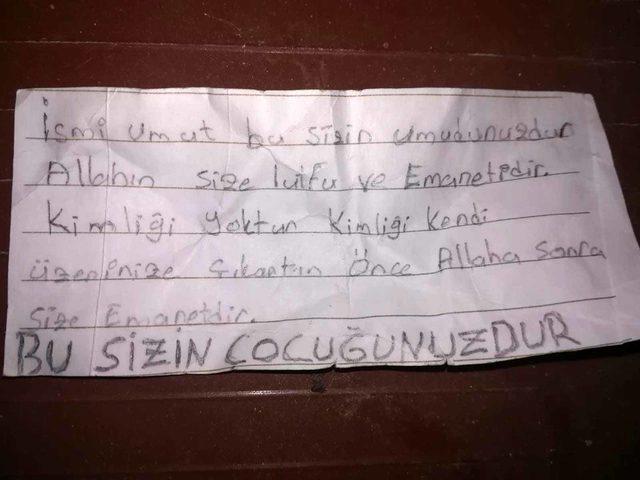 İsmi umut bu sizin umudunuzdur
Allahın size lutfu ve Emanetidir.
Kimliği yoktur Kimliği Kendi
üzerinize Çıkartın Önce Allaha Sonra
Size Emanetdir.
BU SİZİN ÇOCUĞUNUZDUR